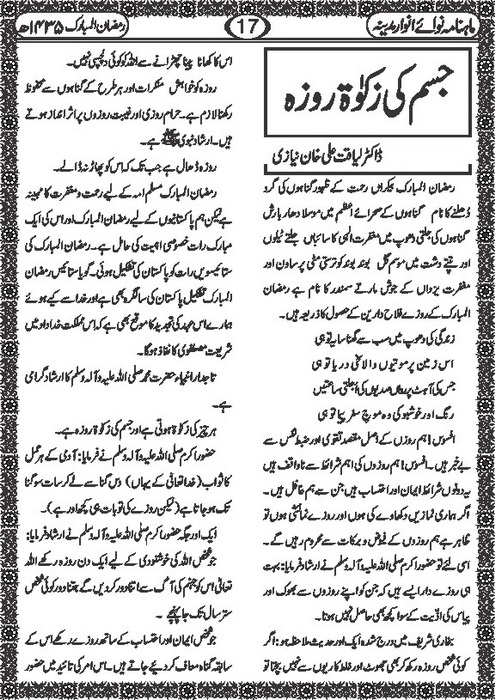 ماہنامہ نوائے انوار مدینہ
17
رمضان المبارک ۱۴۳۵ھ
جسم کی زکوٰۃ روزہ
ڈاکٹر لیاقت علی خان نیازی
رمضان المبارک بیکراں رحمت کے ظہور گناہوں کی گرد
دُھلنے کا نام گناہوں کے صحرائے اعظم میں موسلا دھار بارش
گناہوں کی چلتی دھوپ میں مغفرت الٰہی کا سائباں جلتے ٹیلوں
اور تپتے دشت میں موسم گل بوند بوند کو ترستی مٹی پر ساون اور
مغفرت یزداں کے جوش مارتے سمندر کا نام ہے رمضان
المبارک کے روزے فلاح دارین کے حصول کا ذریعہ ہیں۔
زندگی کی دھوپ میں سب سے گھنا سایہ تو ہی
اس زمین پر موتیوں والا سخی دریا تو ہی
جس کی آہٹ پر صدیوں کی اُجلتی ساعتیں
رنگ اور خوشبو کی وہ موج سفر پیا تو ہی
افسوس! ہم روزوں کے اصل مقصد تقویٰ اور ضبط نفس سے
بے خبر ہیں۔ افسوس! ہم روزوں کی اہم شرائط سے ناواقف ہیں
یہ دونوں شرائط ایمان اور احتساب ہیں جن سے ہم غافل ہیں۔
اگر ہماری نمازیں دکھاوے کی ہوں اور روزے نمائشی ہوں تو
ظاہر ہے ہم روزوں کے فیوض و برکات سے محروم رہیں گے۔
اسی لئے تو حضور اکرم صلی اللہ علیہ وآلہ وسلم نے ارشاد فرمایا: بہت
ہی روزے دار ایسے ہیں کہ جن کو اپنے روزوں سے بھوک اور
پیاس کی اذیت کے سوا کچھ بھی حاصل نہیں ہوتا۔
بخاری شریف میں درج شدہ ایک اور حدیث ملاحظہ ہو: اگر
کوئی شخص روزہ رکھ کر بھی جھوٹ اور غلط کاریوں سے نہیں بچتا تو
اس کا کھانا پینا چھڑانے سے اللہ کو کوئی دلچسپی نہیں۔
روزہ کو خواہش منکرات اور ہر طرح کے گناہوں سے محفوظ
رکھنا لازم ہے۔ حرام روزی اور غیبت روزوں پر اثر انداز ہوتے
ہیں۔ ارشاد نبوی ﷺ ہے۔
روزہ ڈھال ہے جب تک کہ اس کو پھاڑ نہ ڈالے۔
رمضان المبارک مسلم امہ کے لیے رحمت و مغفرت کا مہینہ
ہے لیکن ہم پاکستانیوں کے لیے رمضان المبارک اور اس کی ایک
مبارک رات خصوصی اہمیت کی حامل ہے۔ رمضان المبارک کی
ستائیسویں رات کو پاکستان کی تشکیل ہوئی۔ گویا ستائیس رمضان
المبارک تشکیل پاکستان کی سالگرہ بھی ہے اور خدا سے کیے ہوئے
ہمارے اس عہد کی تجدید کا موقع بھی ہے کہ اس مملکت خداداد میں
شریعت مصطفویؐ کا نفاذ ہوگا۔
تاجدار انبیاء حضرت محمد صلی اللہ علیہ وآلہ وسلم کا ارشاد گرامی
ہے۔
ہر چیز کی زکوٰۃ ہوتی ہے اور جسم کی زکوٰۃ روزہ ہے۔
حضور اکرم صلی اللہ علیہ وآلہ وسلم نے فرمایا: آدمی کے ہر عمل
کا ثواب (خدا تعالیٰ کے یہاں) دس گنا سے لے کر سات سو گنا
تک ہو جاتا ہے (لیکن روزے کی تو بات ہی کچھ اور ہے)۔
ایک اور جگہ حضور اکرم صلی اللہ علیہ وآلہ وسلم نے ارشاد فرمایا:
جو شخص اللہ کی خوشنودی کے لیے ایک دن روزہ رکھے اللہ
تعالیٰ اس کو جہنم کی آگ سے اتنا دور کر دیں گے جتنا دور کوئی شخص
ستر سال تک جا پہنچے۔
جو شخص ایمان اور احتساب کے ساتھ روزے رکھے اس کے
سابقہ گناہ معاف کر دیئے جاتے ہیں۔ اس امر کی تائید میں حضور